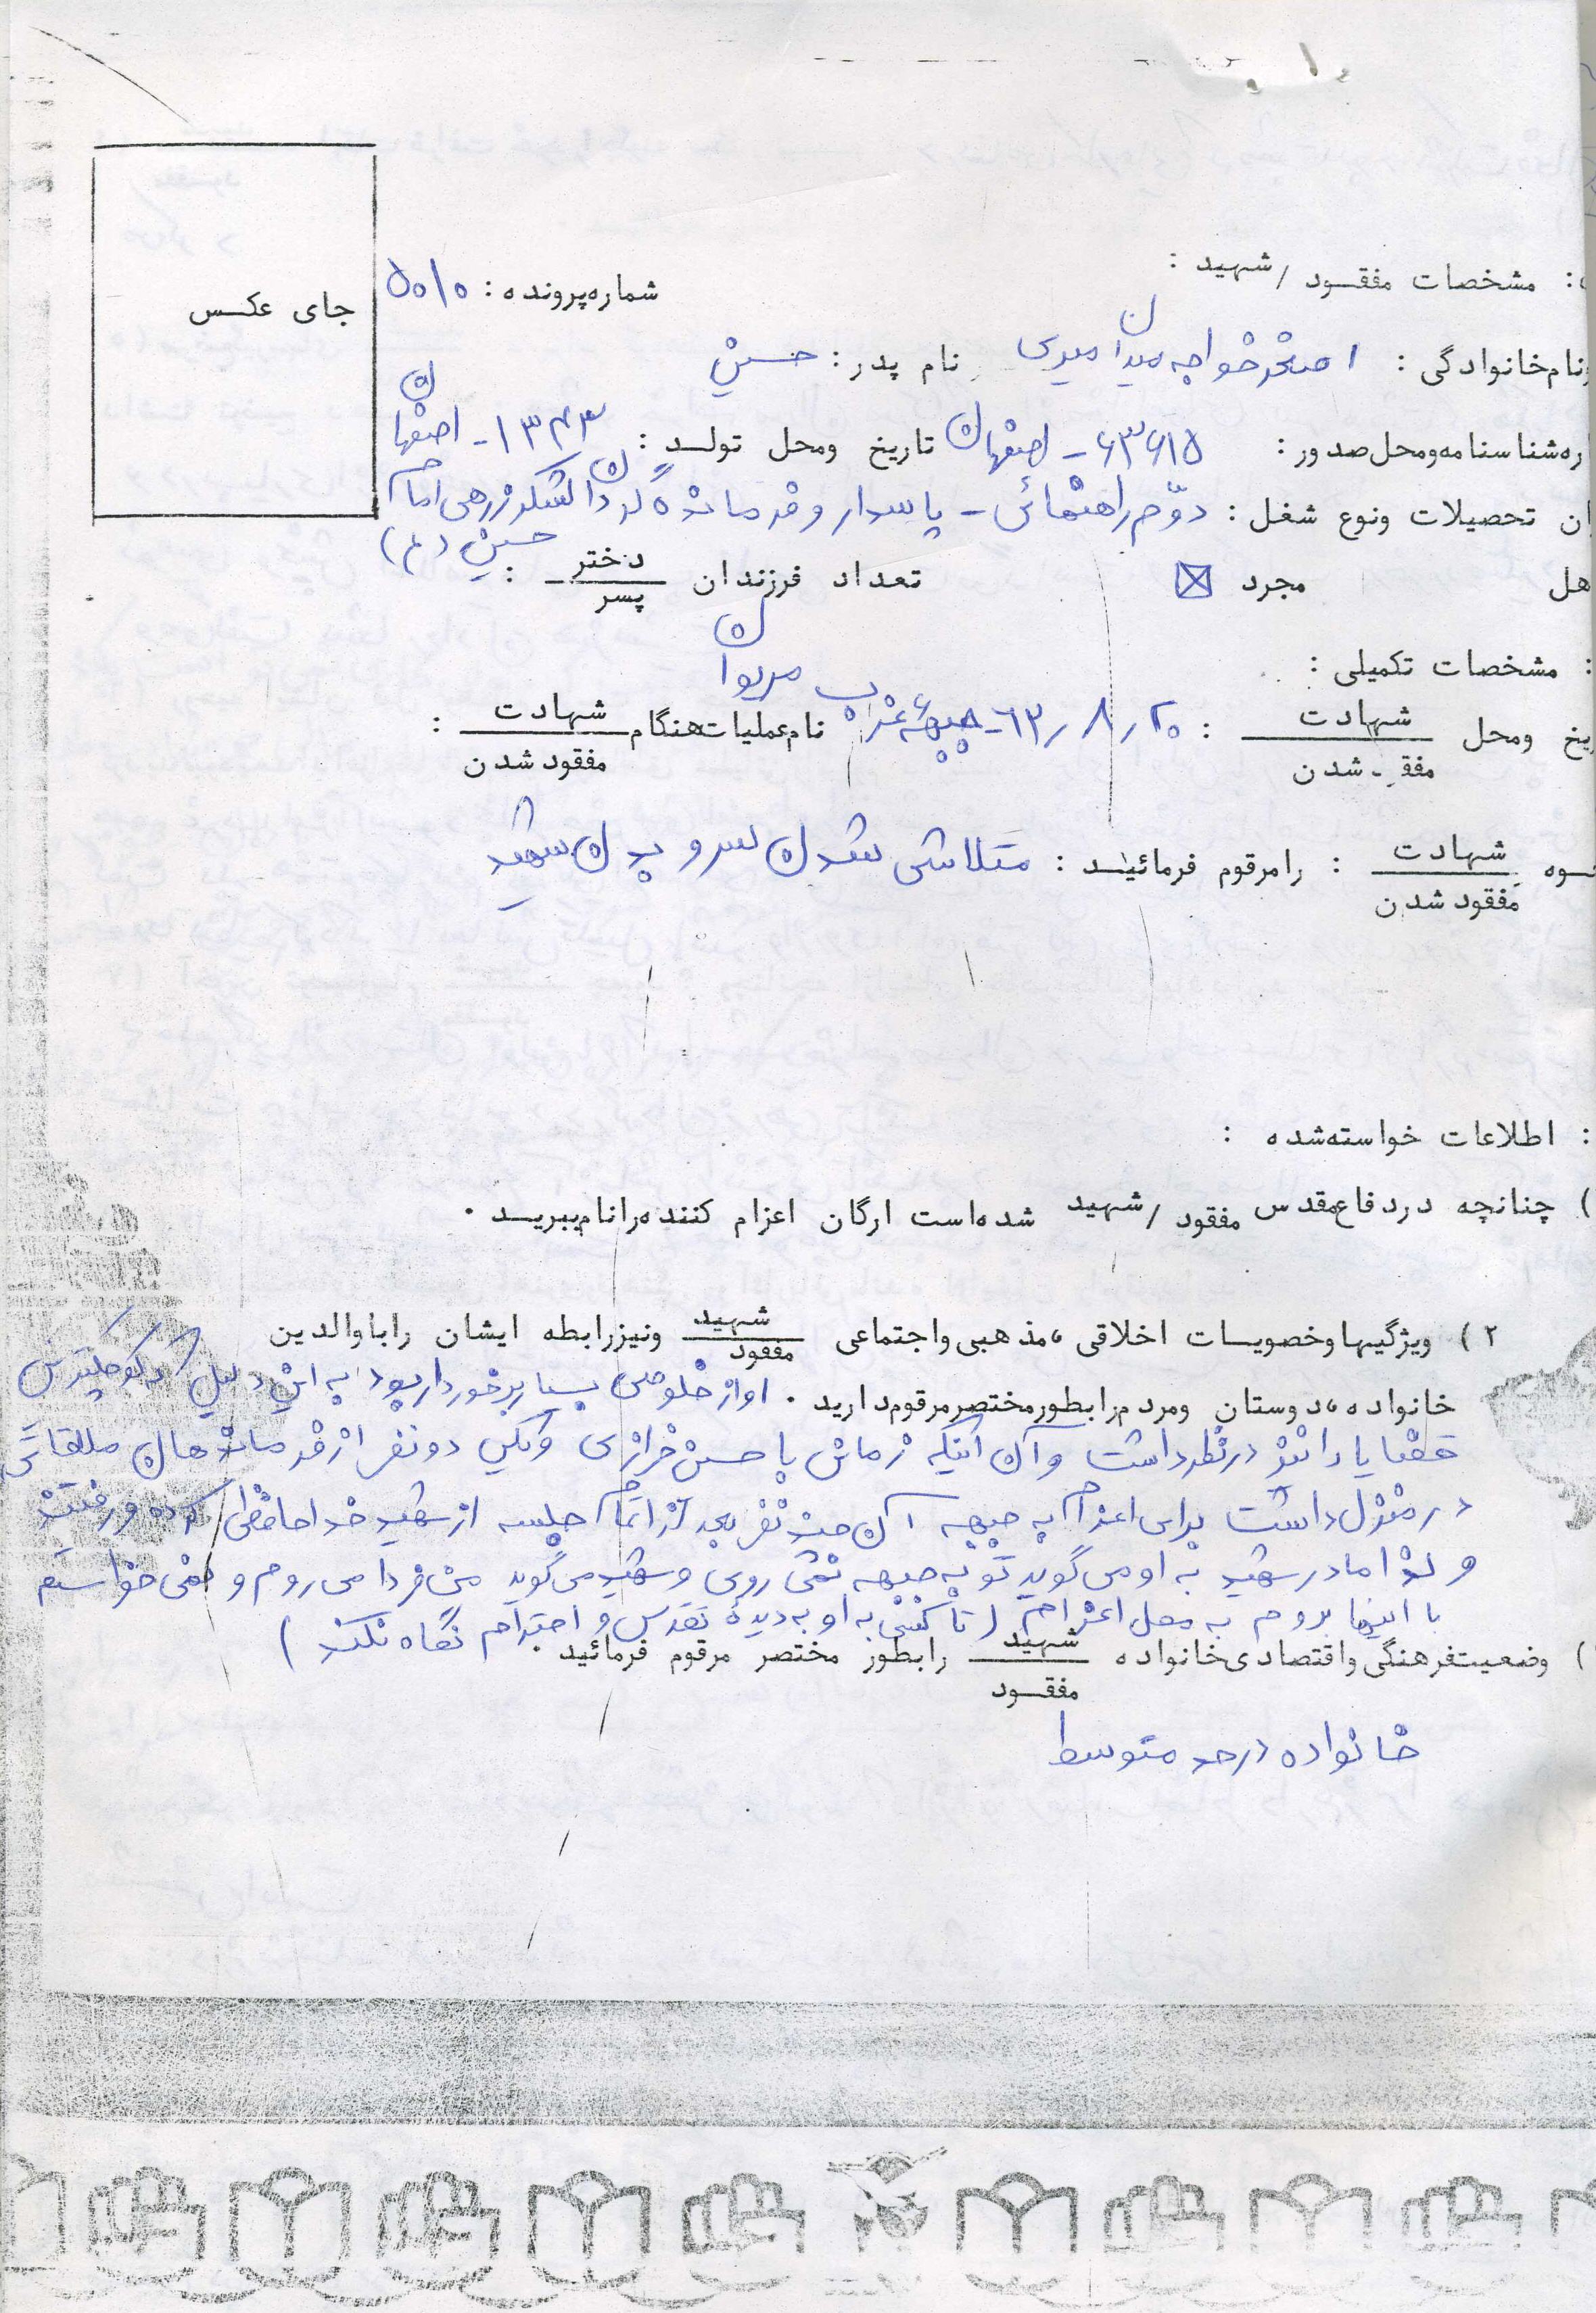 : مشخصات مفقود / شهید :
شماره پرونده : ۵۰۱۰
جای عکس
نام خانوادگی : اصغر خواجه میدان میری نام پدر : حسین
ره شناسنامه و محل صدور : ۶۳۶۱۵ - اصفهان تاریخ ومحل تولد : ۱۳۴۳ - اصفهان
ان تحصیلات ونوع شغل : دوّم راهنمائی - پاسدار و فرمانده گردان لشکر زرهی امام حسین (ع)
هل مجرد ☒ تعداد فرزندان دختر / پسر :
: مشخصات تکمیلی :
یخ ومحل شهادت / مفقود شدن : ۶۳/۸/۲۰ - جبهه غرب مریوان نام عملیات هنگام شهادت / مفقود شدن :
شهادت / مفقود شدن : را مرقوم فرمائید : متلاشی شدن سر و بدن شهید
: اطلاعات خواسته شده :
) چنانچه در دفاع مقدس مفقود / شهید شده است ارگان اعزام کننده را نام ببرید .
۲ ) ویژگیها وخصوصیات اخلاقی ، مذهبی واجتماعی شهید / مفقود ونیز رابطه ایشان را با والدین
خانواده ، دوستان ومردم را بطور مختصر مرقوم دارید . او از خلوصی بسیار برخوردار بود به این دلیل که کوچکترین
را در نظر داشت و آن اینکه زمانی با حسن خرازی و یکی دو نفر از فرماندهان ملاقاتی
در منزل داشت برای اعزام به جبهه آن چند نفر بعد از اتمام جلسه از شهید خداحافظی کرده و رفتند
و لذا مادر شهید به او می گوید تو به جبهه نمی روی و شهید می گوید من فردا می روم و نمی خواستم
با اینها بروم به محل اعزام (تا کسی به او به دیدهٔ تقدس و احترام نگاه نکند)
) وضعیت فرهنگی واقتصادی خانواده شهید / مفقود را بطور مختصر مرقوم فرمائید .
خانواده در حد متوسط